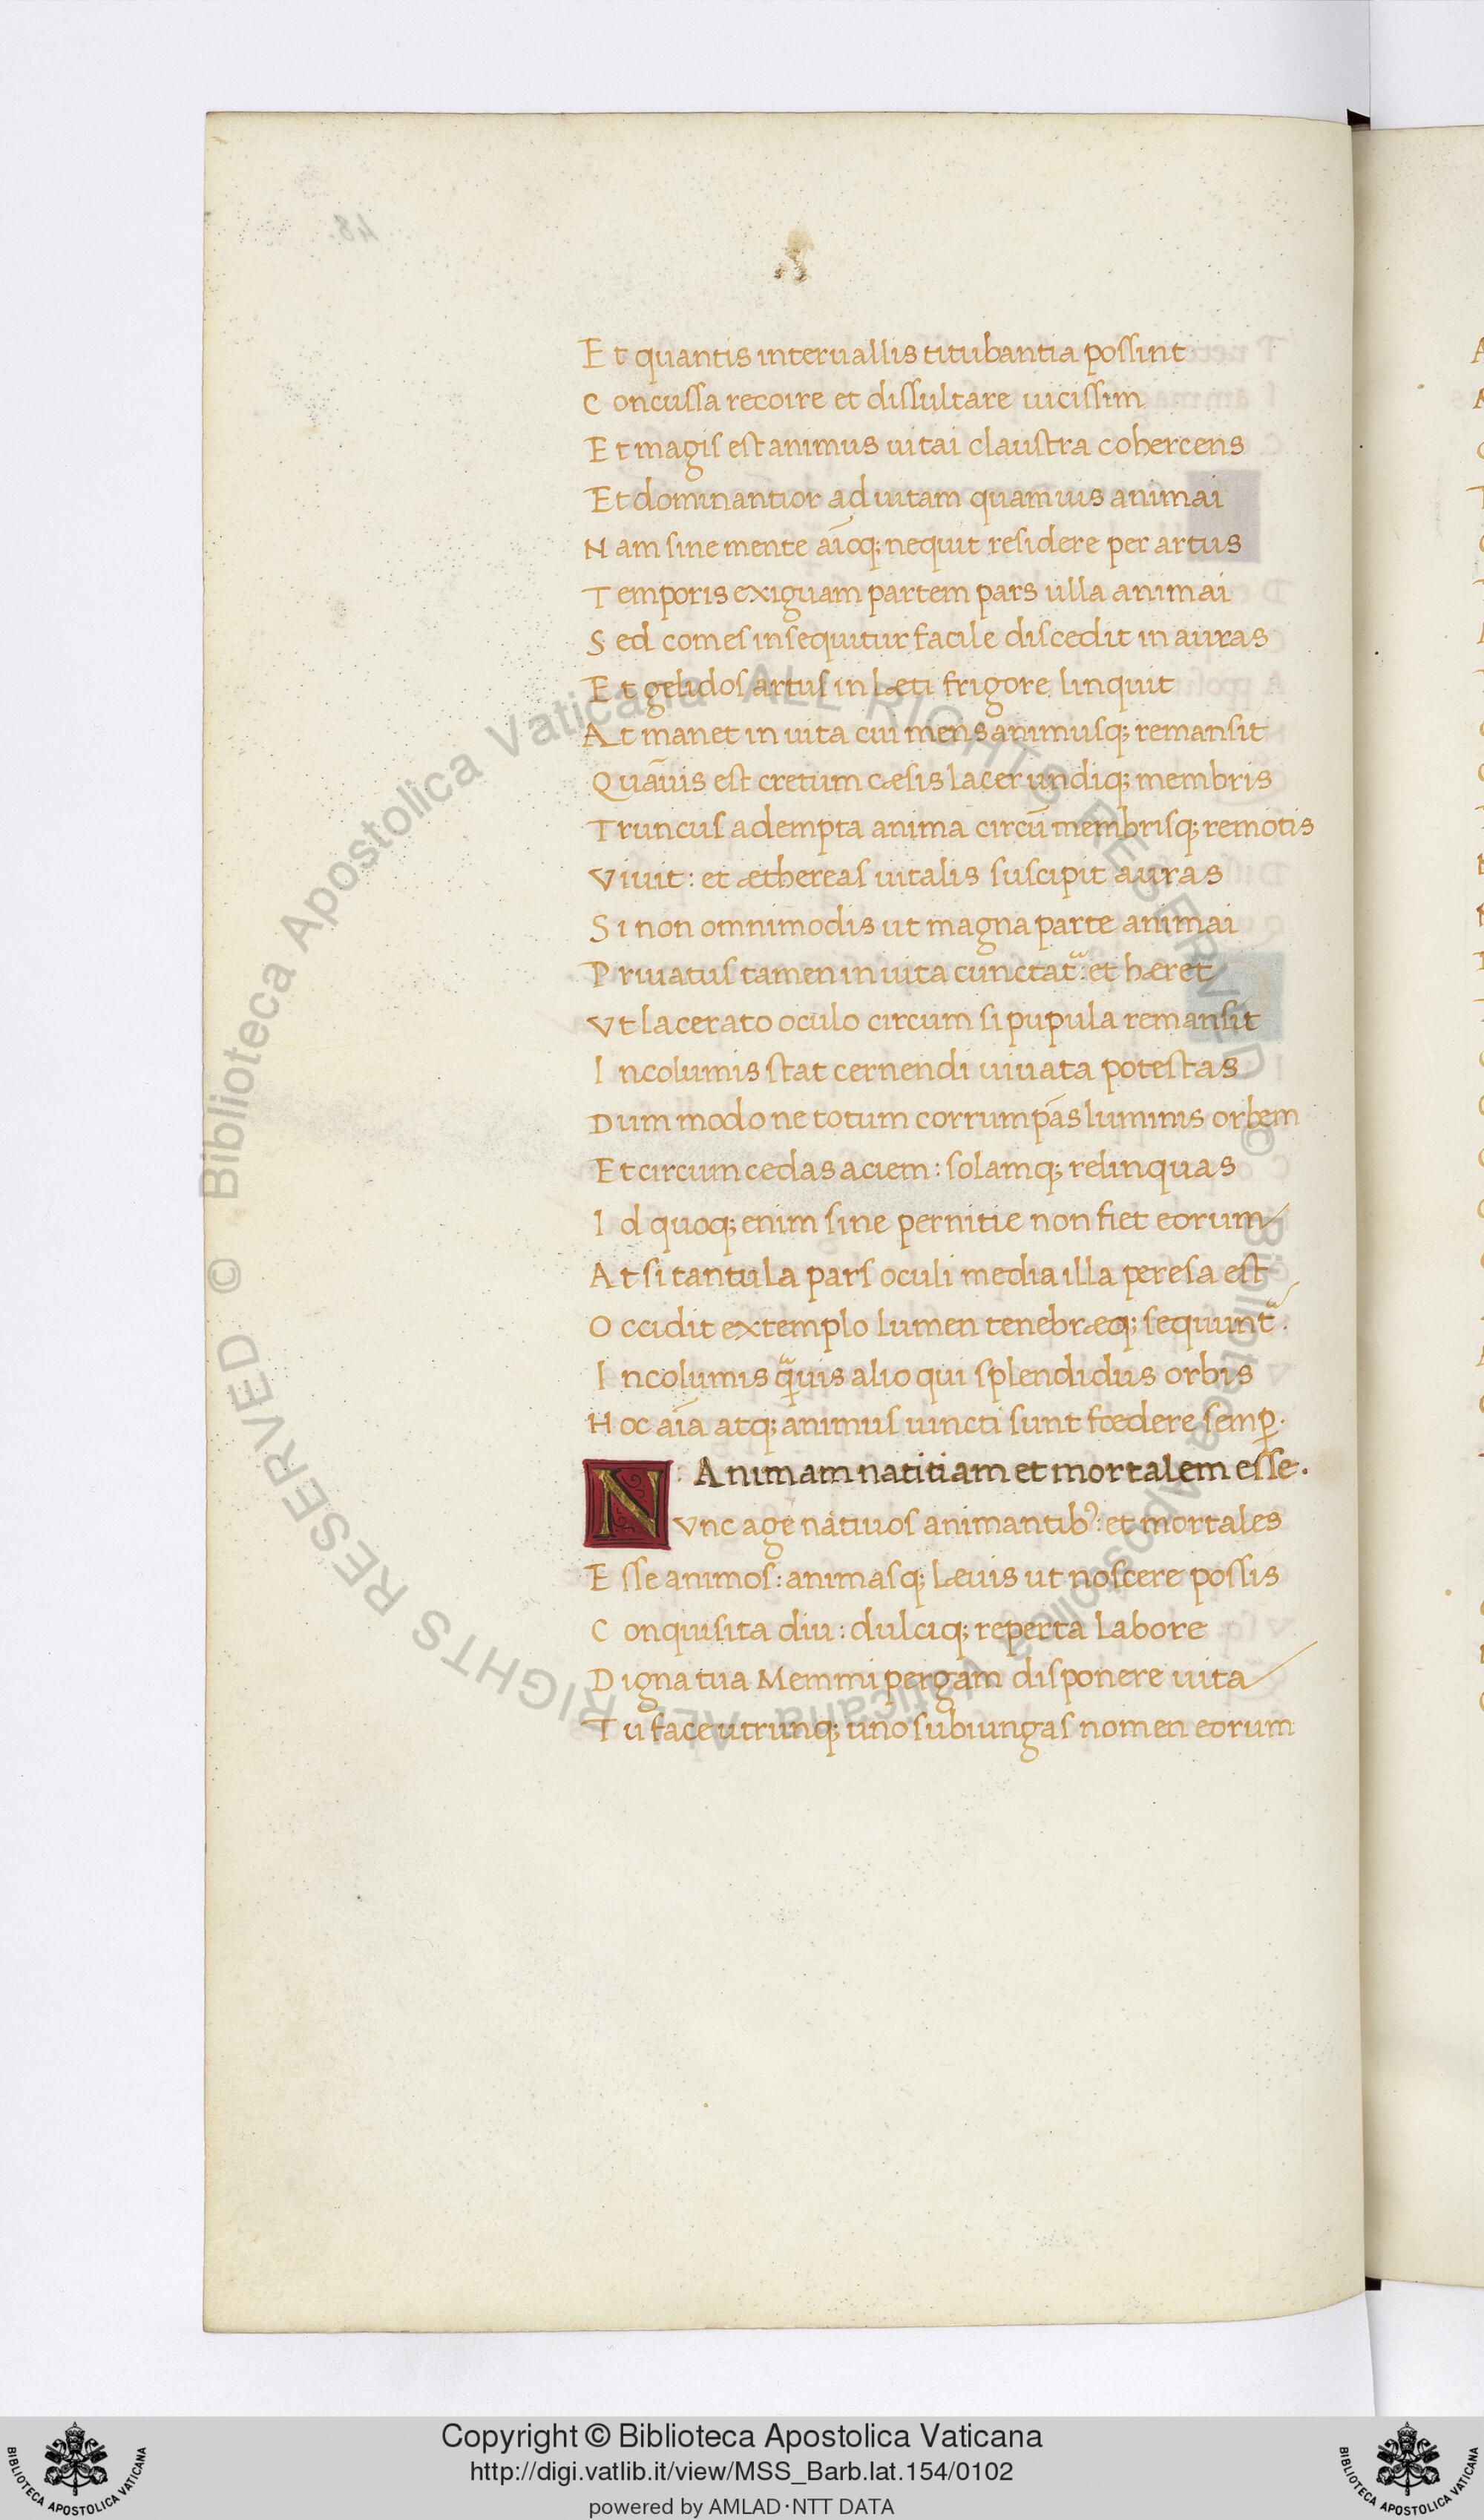 Et quantis interuallis titubantia poſſint
Concuſſa recoire et diſſultare uiciſſim
Et magiſ eſt animus uitai clauſtra cohercens
Et dominantior ad uitam quamuis animai
Nam ſine mente aīoq; nequit reſidere per artus
Temporis exiguam partem pars ulla animai
Sed comeſ inſequitur facile diſcedit in auras
Et gelidoſ artuſ in læti frigore linquit
At manet in uita cui mens animuſq; remanſit
Quāuis eſt cretum cæſis lacer undiq; membris
Truncuſ adempta anima circū membriſq; remotis
Viuit: et æthereaſ uitalis ſuſcipit auras
Si non omnimodis ut magna parte animai
Priuatuſ tamen in uita cunctat᷑: et hæret
Vt lacerato oculo circum ſi pupula remanſit
Incolumis ſtat cernendi uiuata poteſtas
Dum modo ne totum corrumpās luminis orbem
Et circum cedas aciem: ſolamq; relinquas
Id quoq; enim ſine pernitie non fiet eorum
At ſi tantula parſ oculi media illa pereſa eſt
Occidit extemplo lumen tenebræq; ſequunt᷑.
Incolumis q̈uis alioqui ſplendidus orbis
Hoc aīa atq; animuſ uincti ſunt fœdere ſemꝑ.
Animam natitiam et mortalem eſſe.
NVnc age natiuoſ animantibꝰ: et mortales
Eſſe animoſ: animaſq; læuis ut noſcere poſſis
Conqiuſita diu: dulciq; reperta labore
Digna tua Memmi pergam diſponere uita
Tu face utrunq; uno ſubiungaſ nomen eorum
48.
Copyright © Biblioteca Apostolica Vaticana
http://digi.vatlib.it/view/MSS_Barb.lat.154/0102
powered by AMLAD·NTT DATA
© Biblioteca Apostolica Vaticana ALL RIGHTS RESERVED
© Biblioteca Apostolica Vaticana ALL RIGHTS RESERVED
BIBLIOTECA APOSTOLICA VATICANA
BIBLIOTECA APOSTOLICA VATICANA